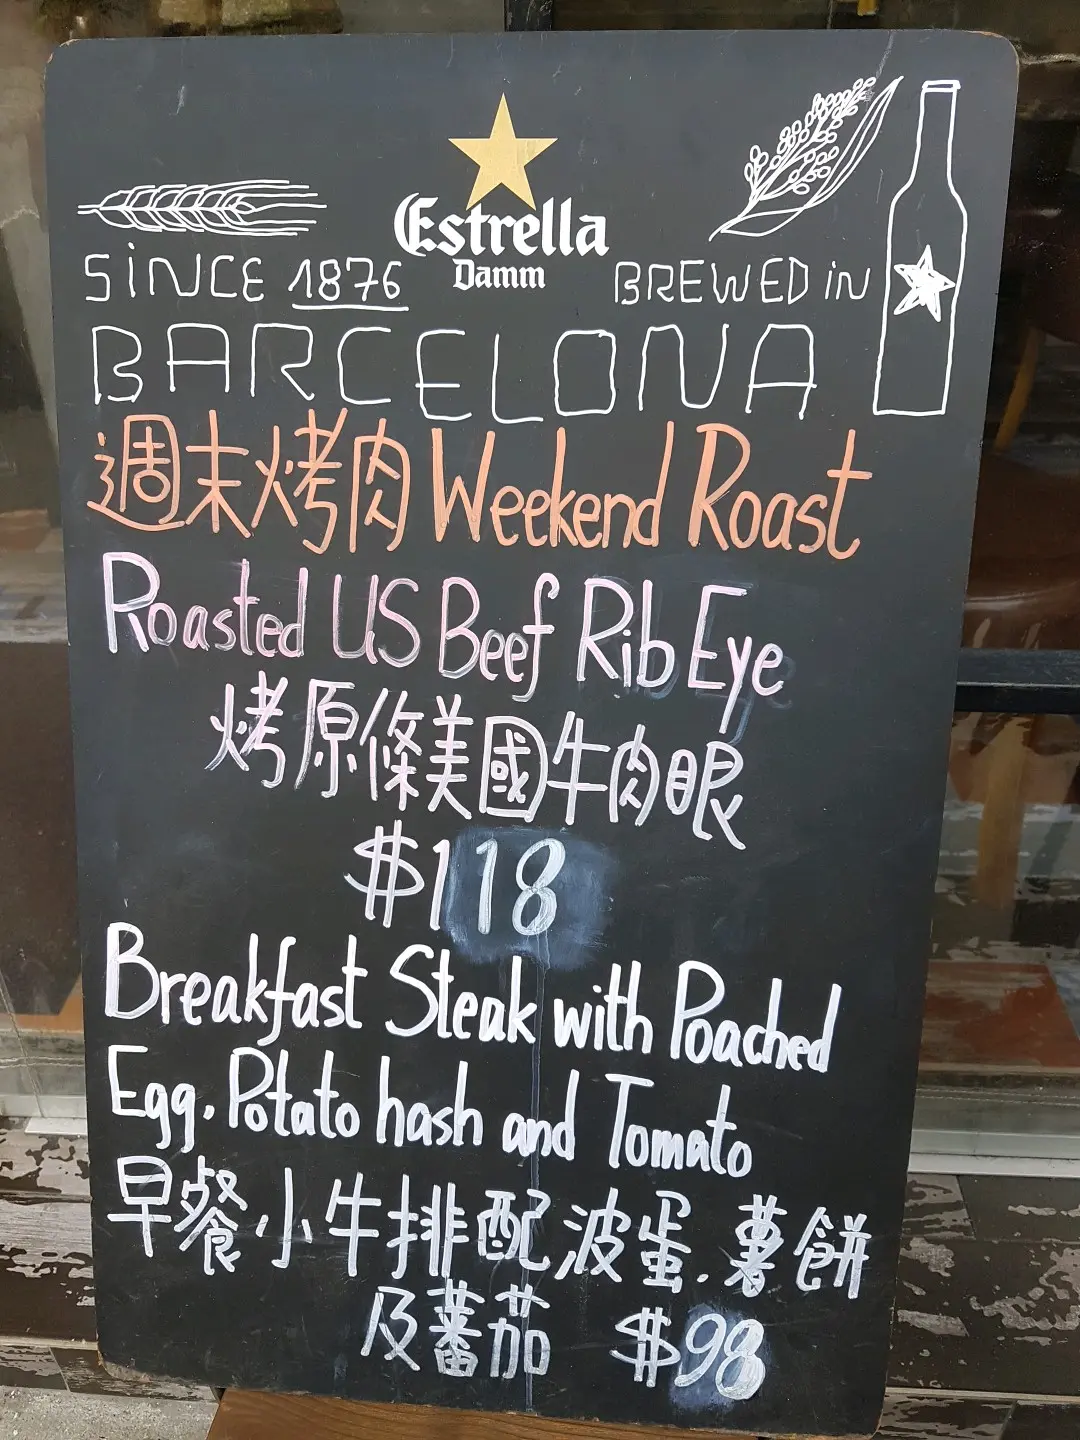 Estrella
Damm
SINCE 1876
BREWED IN
BARCELONA
週末烤肉 Weekend Roast
Roasted US Beef Rib Eye
烤原條美國牛肉眼
$118
Breakfast Steak with Poached
Egg. Potato hash and Tomato
早餐小牛排配波蛋.薯餅
及蕃茄 $98